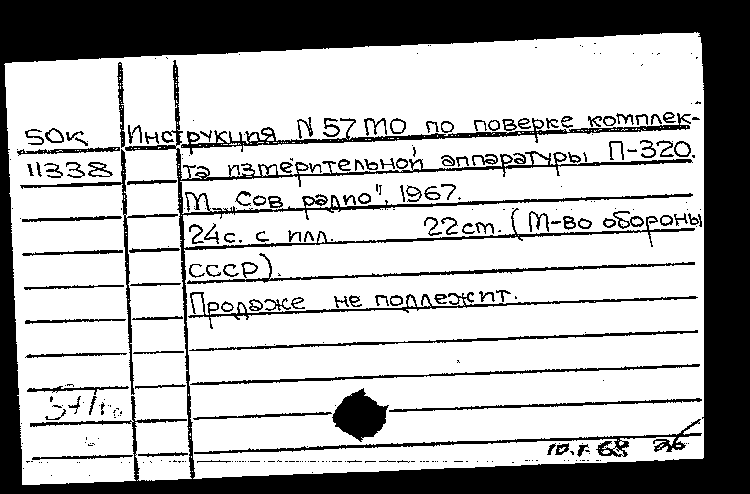 50К Инструкция N 57 МО по поверке комплек-
11338 та измерительной аппаратуры П-320.
М., „Сов. радио", 1967.
24с. с илл. 22cm. (М-во обороны
СССР).
Продаже не подлежит.